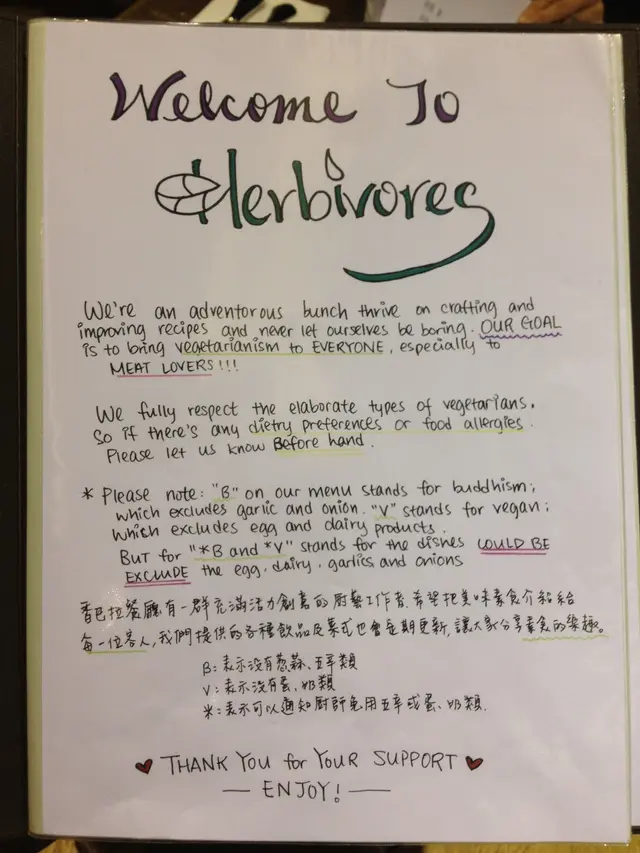 Welcome To
Herbivores
We're an adventorous bunch thrive on crafting and
improving recipes and never let ourselves be boring. OUR GOAL
is to bring vegetarianism to EVERYONE, especially to
MEAT LOVERS!!!
We fully respect the elaborate types of vegetarians.
So if there's any dietry preferences or food allergies.
Please let us know Before hand.
* Please note: "B" on our menu stands for buddhism;
which excludes garlic and onion. "V" stands for vegan;
which excludes egg and dairy products.
BUT for "*B and *V" stands for the dishes COULD BE
EXCLUDE the egg, dairy, garlics and onions
香巴拉餐廳有一群充滿活力創意的廚藝工作者.希望把美味素食介紹給
每一位客人,我們提供的各種飲品及菜式也會定期更新,讓大家分享素食的樂趣。
B:表示沒有蔥蒜、五辛類
V:表示沒有蛋、奶類
米:表示可以通知厨師免用五辛或蛋、奶類.
THANK YOU for YOUR SUPPORT
— ENJOY! —